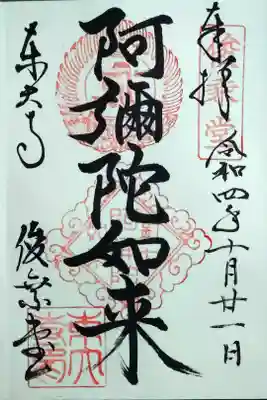 奉拝
令和四年十月廿一日
阿彌陀如来
東大寺
俊乗堂